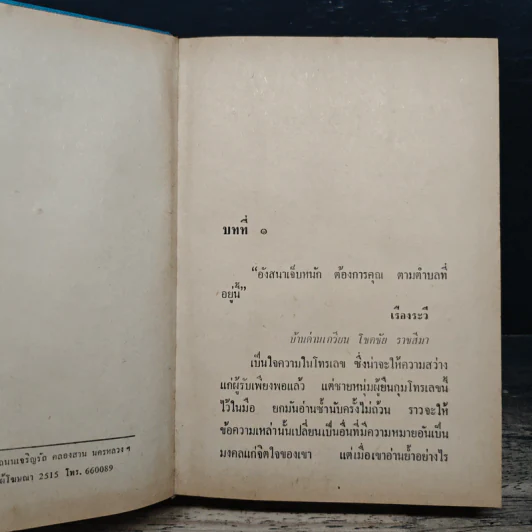 ถนนเจริญรัถ คลองสาน นครหลวง ฯ
พิมพ์โฆษณา 2515 โทร. 660089
บทที่ ๑
“อังสนาเจ็บหนัก ต้องการคุณ ตามตำบลที่
อยู่นี้”
เรืองระวี
บ้านด่านเกวียน โชคชัย ราชสีมา
เป็นใจความในโทรเลข ซึ่งน่าจะให้ความสว่าง
แก่ผู้รับเพียงพอแล้ว แต่ชายหนุ่มผู้ยืนกุมโทรเลขนี้
ไว้ในมือ ยกมันอ่านซ้ำนับครั้งไม่ถ้วน ราวจะให้
ข้อความเหล่านั้นเปลี่ยนเป็นอื่นที่มีความหมายอันเป็น
มงคลแก่จิตใจของเขา แต่เมื่อเขาอ่านย้ำอย่างไร